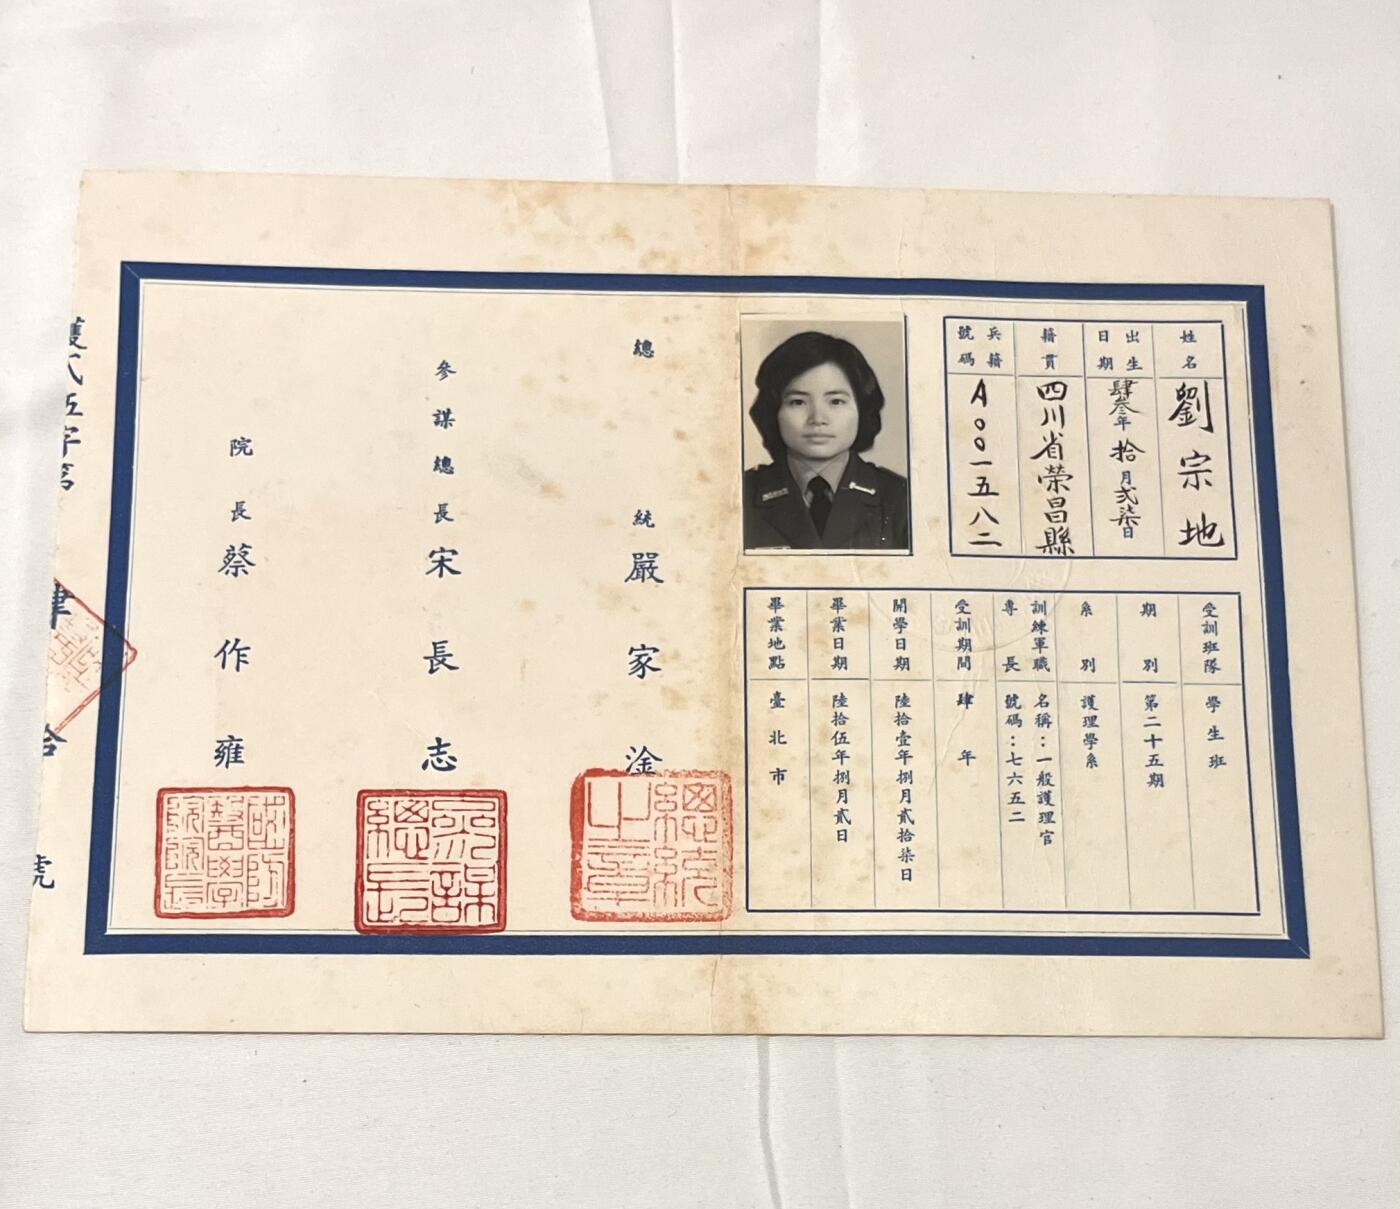 姓名
劉宗地
出生日期
肆叁年拾月弍柒日
籍貫
四川省榮昌縣
兵籍號碼
A〇〇一五八二
受訓班隊
學生班
期別
第二十五期
系別
護理學系
訓練軍職專長
名稱：一般護理官
號碼：七六五二
受訓期間
肆年
開學日期
陸拾壹年捌月貳拾柒日
畢業日期
陸拾伍年捌月貳日
畢業地點
臺北市
總統 嚴家淦
總統之章
參謀總長 宋長志
參謀總長
院長 蔡作雍
國防醫學院院長
護弍伍字第肆拾號